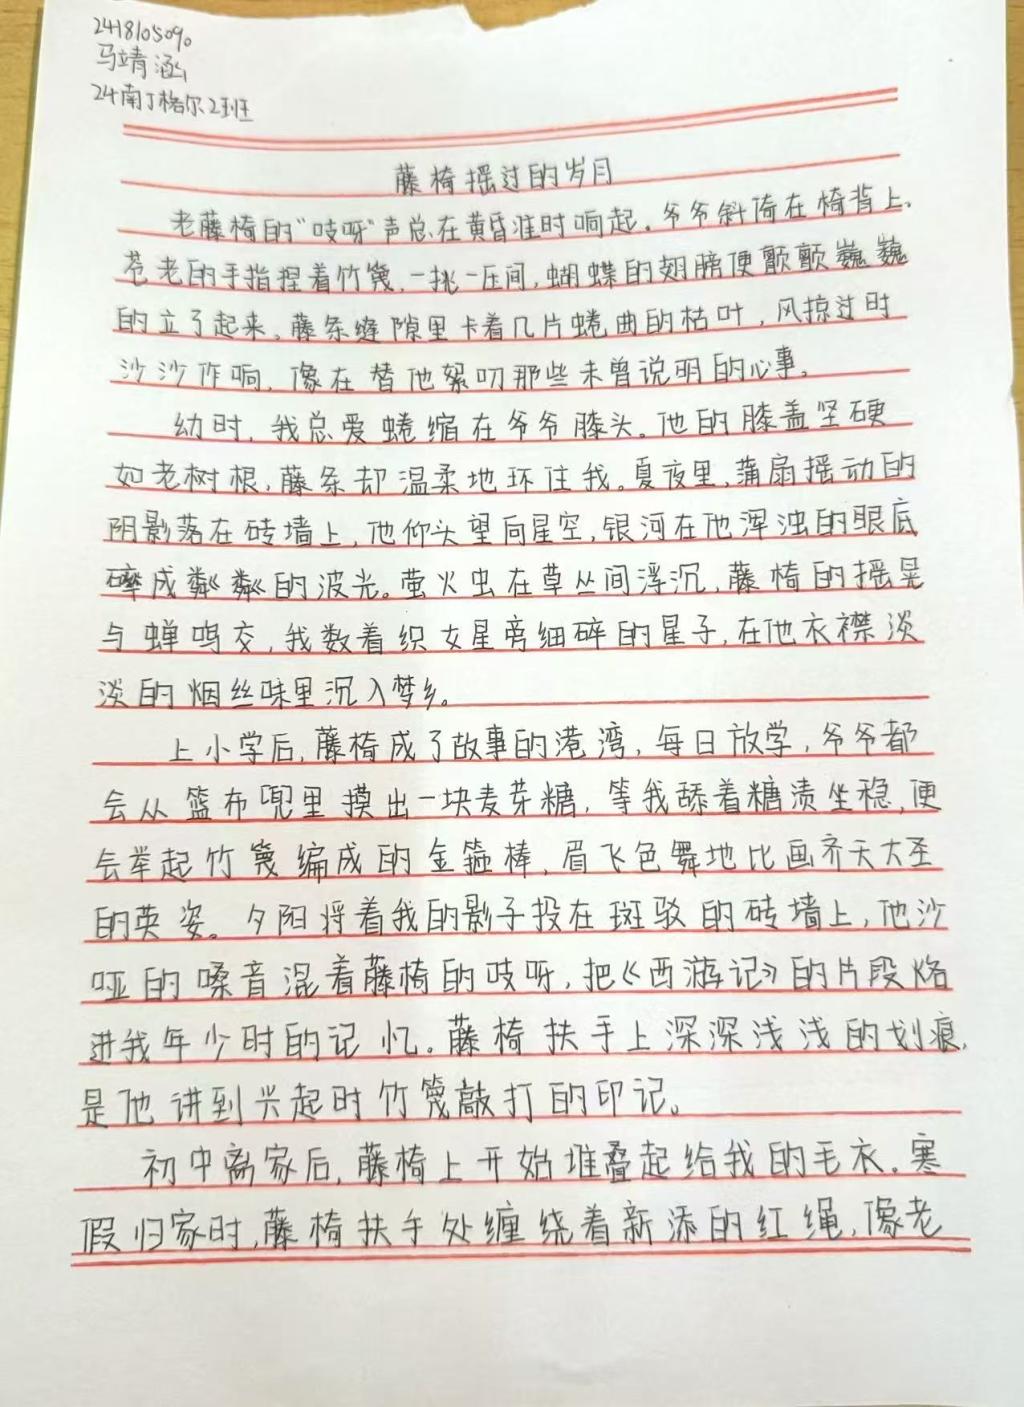 2418105090
马靖涵
24南丁格尔2班
藤椅摇过的岁月
老藤椅的“吱呀”声总在黄昏准时响起。爷爷斜倚在椅背上，
苍老的手指捏着竹篾，一挑一压间，蝴蝶的翅膀便颤颤巍巍
的立了起来。藤条缝隙里卡着几片蜷曲的枯叶，风掠过时
沙沙作响，像在替他絮叨那些未曾说明的心事。
幼时，我总爱蜷缩在爷爷膝头。他的膝盖坚硬
如老树根，藤条却温柔地环住我。夏夜里，蒲扇摇动的
阴影落在砖墙上，他仰头望向星空，银河在他浑浊的眼底
碎成粼粼的波光。萤火虫在草丛间浮沉，藤椅的摇晃
与蝉鸣交，我数着织女星旁细碎的星子，在他衣襟淡
淡的烟丝味里沉入梦乡。
上小学后，藤椅成了故事的港湾，每日放学，爷爷都
会从篮布兜里摸出一块麦芽糖，等我舔着糖渍坐稳，便
会举起竹篾编成的金箍棒，眉飞色舞地比画齐天大圣
的英姿。夕阳将着我的影子投在斑驳的砖墙上，他沙
哑的嗓音混着藤椅的吱呀，把《西游记》的片段烙
进我年少时的记忆。藤椅扶手上深深浅浅的划痕，
是他讲到兴起时竹篾敲打的印记。
初中离家后，藤椅上开始堆叠起给我的毛衣。寒
假归家时，藤椅扶手处缠绕着新添的红绳，像老